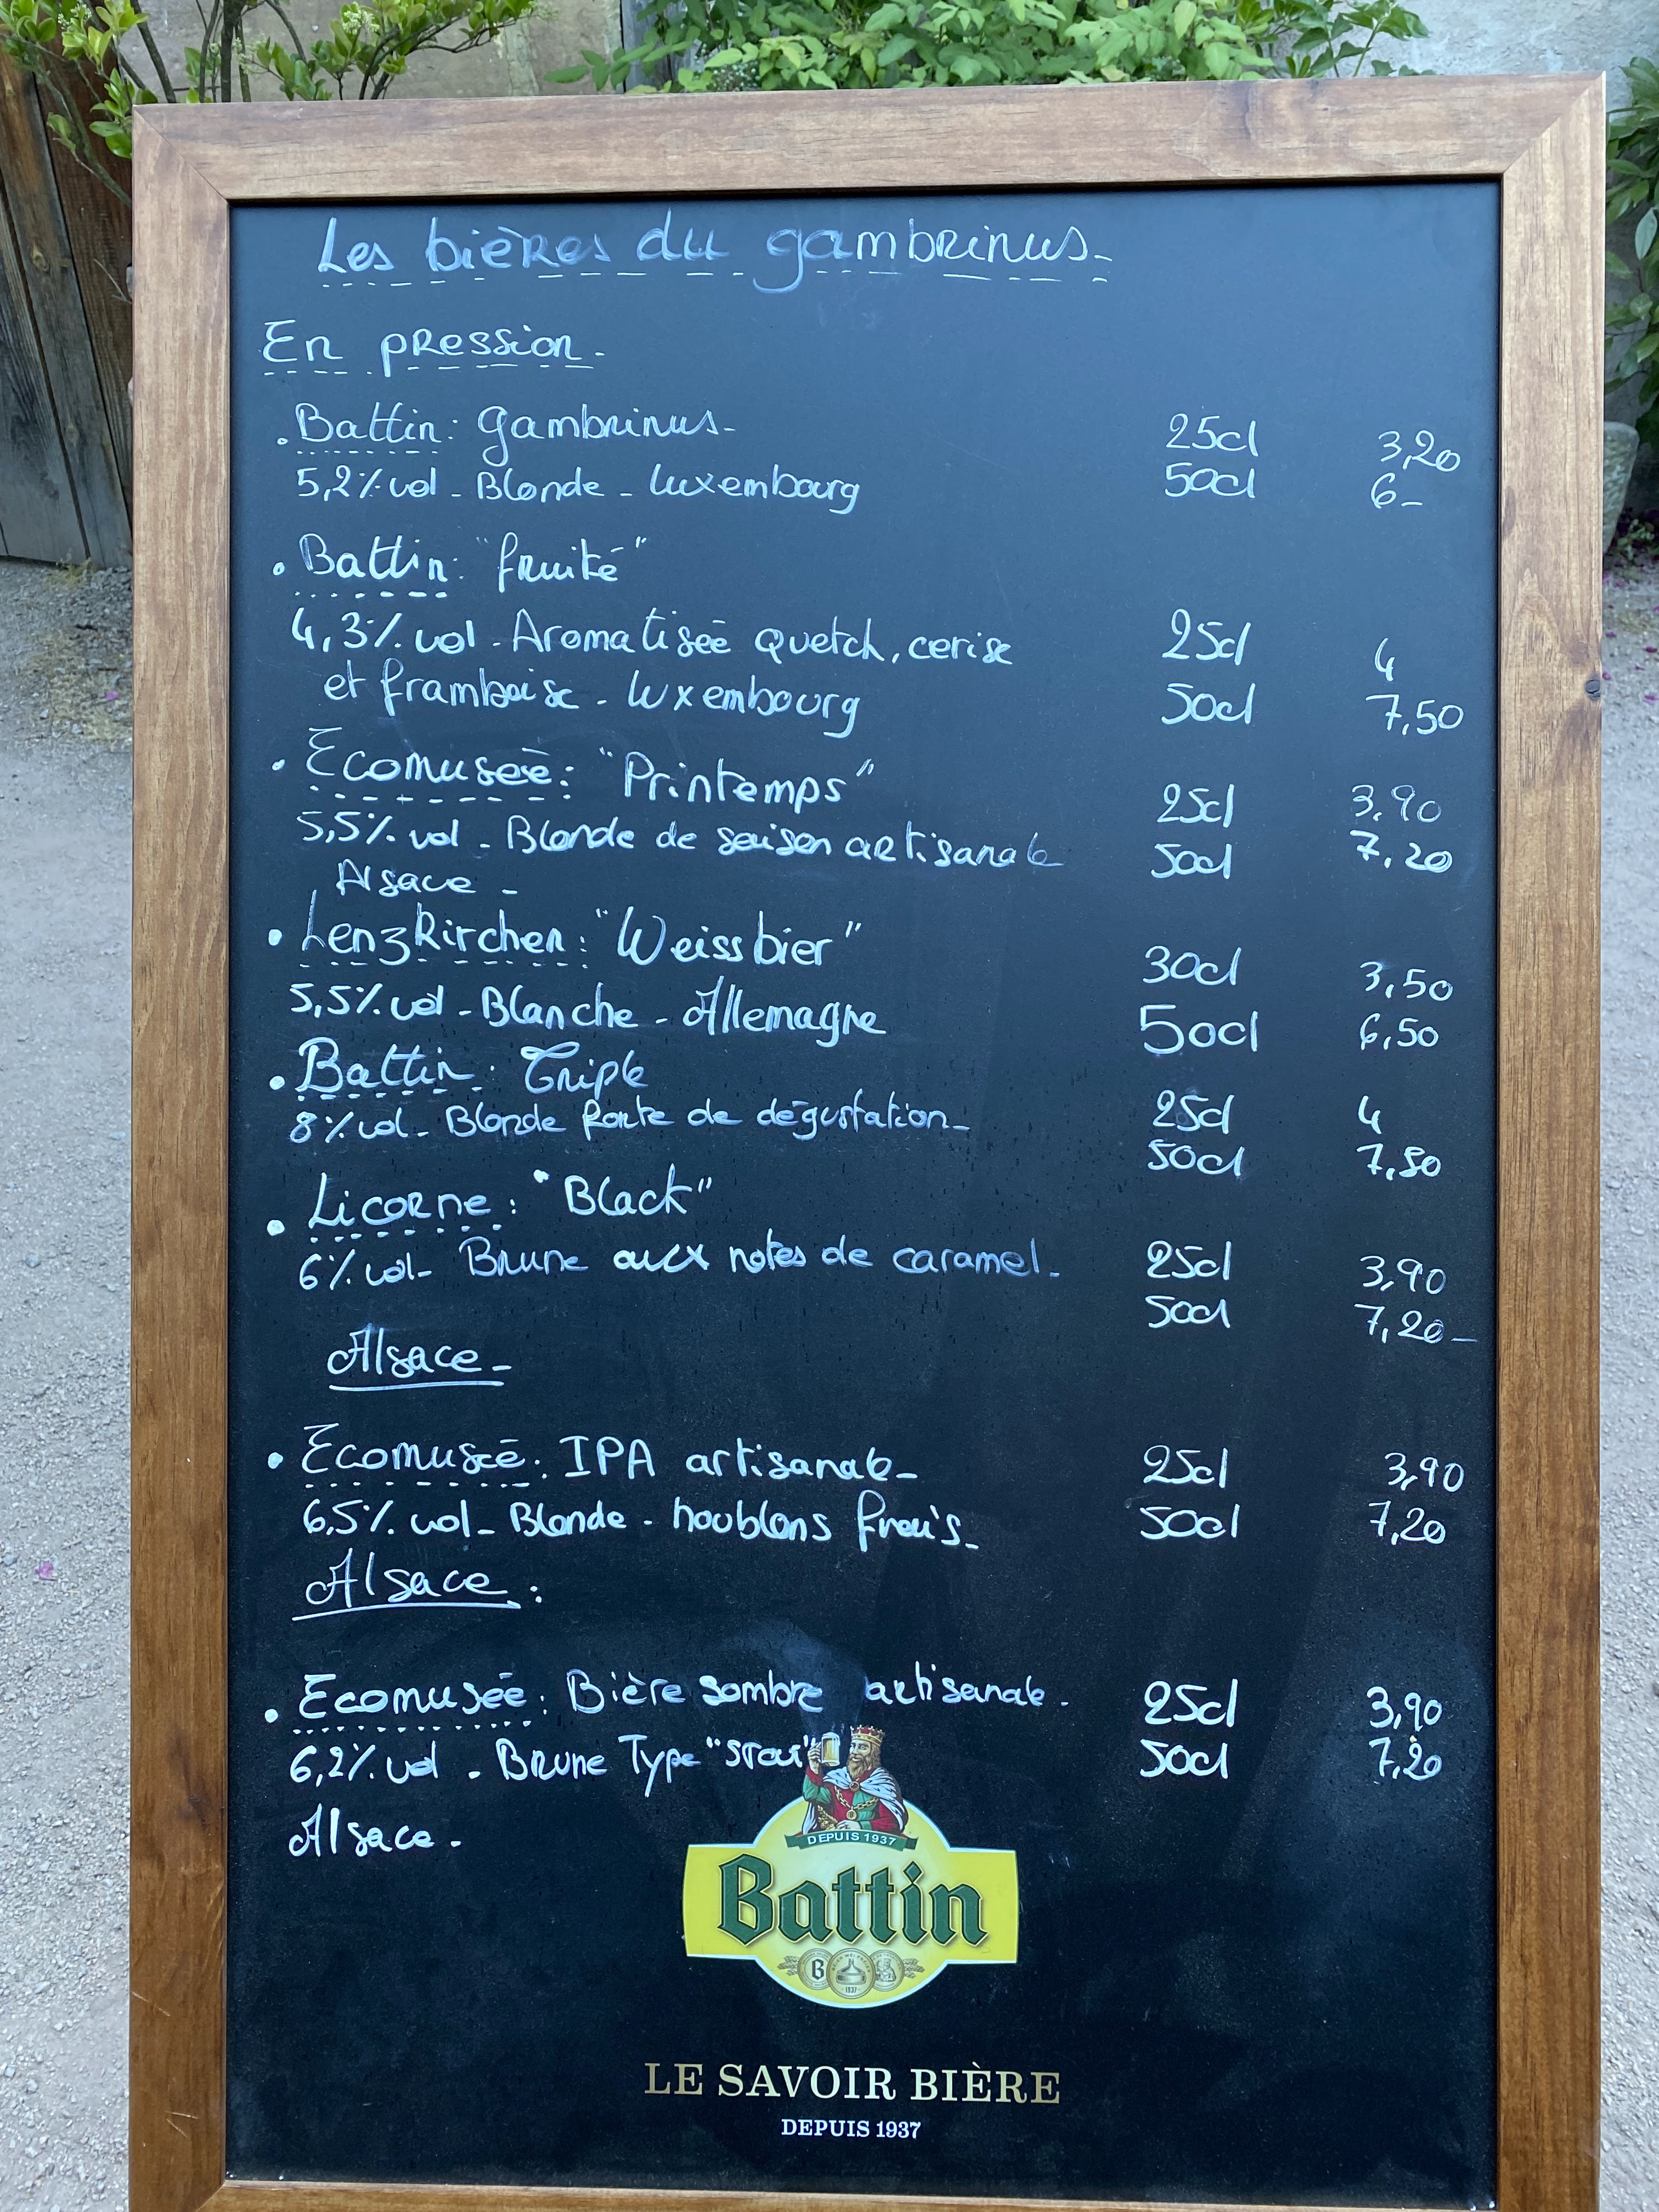 Les bières du gambrinus-
En pression-
. Battin: gambrinus- 25cl 3,20
5,2% vol - Blonde - luxembourg 50cl 6-
. Battin: "fruité"
4,3% vol - Aromatiseé quetch, cerise 25cl 4
et framboise - luxembourg 50cl 7,50
. Ecomuseé: "Printemps" 25cl 3,90
5,5% vol - Blonde de saison artisanale 50cl 7,20
Alsace -
. Lenzkirchen: "Weissbier" 30cl 3,50
5,5% vol - Blanche - Allemagne 50cl 6,50
. Battin: Triple 25cl 4
8% vol - Blonde forte de dégustation- 50cl 7,50
. Licorne: "Black"
6% vol- Brune aux notes de caramel- 25cl 3,90
50cl 7,20-
Alsace-
. Ecomusée: IPA artisanale- 25cl 3,90
6,5% vol - Blonde - houblons frais- 50cl 7,20
Alsace:
. Ecomusée: Bière sombre artisanale - 25cl 3,90
6,2% vol - Brune Type "Stout" 50cl 7,20
Alsace-
DEPUIS 1937
Battin
B
1937
LE SAVOIR BIÈRE
DEPUIS 1937